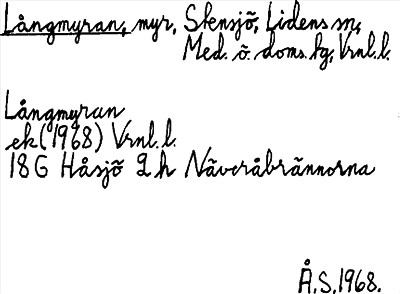 Långmyran, myr, Stensjö, Lidens sn,
Med. ö. doms. hg, Vrnl. l.
Långmyran
ek (1968) Vrnl. l.
18 G Håsjö 2 h Näveråbrännorna
Å.S. 1968.